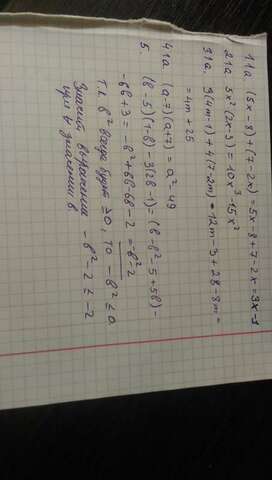 11а. (5x - 8) + (7 - 2x) = 5x - 8 + 7 - 2x = 3x - 1
21а. 5x² (2x - 3) = 10x³ - 15x²
31а. 3(4m - 1) + 4(7 - 2m) = 12m - 3 + 28 - 8m =
= 4m + 25
41а. (a - 7)(a + 7) = a² - 49
5. (в - 5)(1 - в) - 3(2в - 1) = (в - в² - 5 + 5в) -
- 6в + 3 = - в² + 6в - 6в - 2 = - в² - 2
Т.к. в² всегда будет ≥ 0, то - в² ≤ 0.
Значит, выражение - в² - 2 ≤ - 2
при ∀ значении в